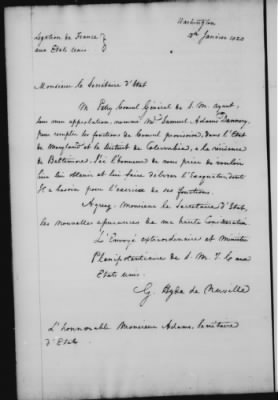 Washington
Légation de France
Janvier 1820
aux Etats unis
Monsieur le Secrétaire d'Etat
M. Petry Consul Général de S. M. ayant,
sous mon approbation, nommé Mr. Samuel Adams
pour remplir les fonctions de Consul provisoire, dans l'Etat
de Maryland et le District de Colombia, à la résidence
de Baltimore, J'ai l'honneur de vous prier de vouloir
bien lui obtenir et lui faire délivrer l'Exequatur, dont
Il a besoin pour l'exercice de ses fonctions.
Agréez, Monsieur le Secrétaire d'Etat,
les nouvelles assurances de ma haute Considération
L'Envoyé extraordinaire et Ministre
Plénipotentiaire de S. M. T. C. aux
Etats unis.
G. Hyde de Neuville
L'honnorable Monsieur Adams, Secrétaire
d'Etat